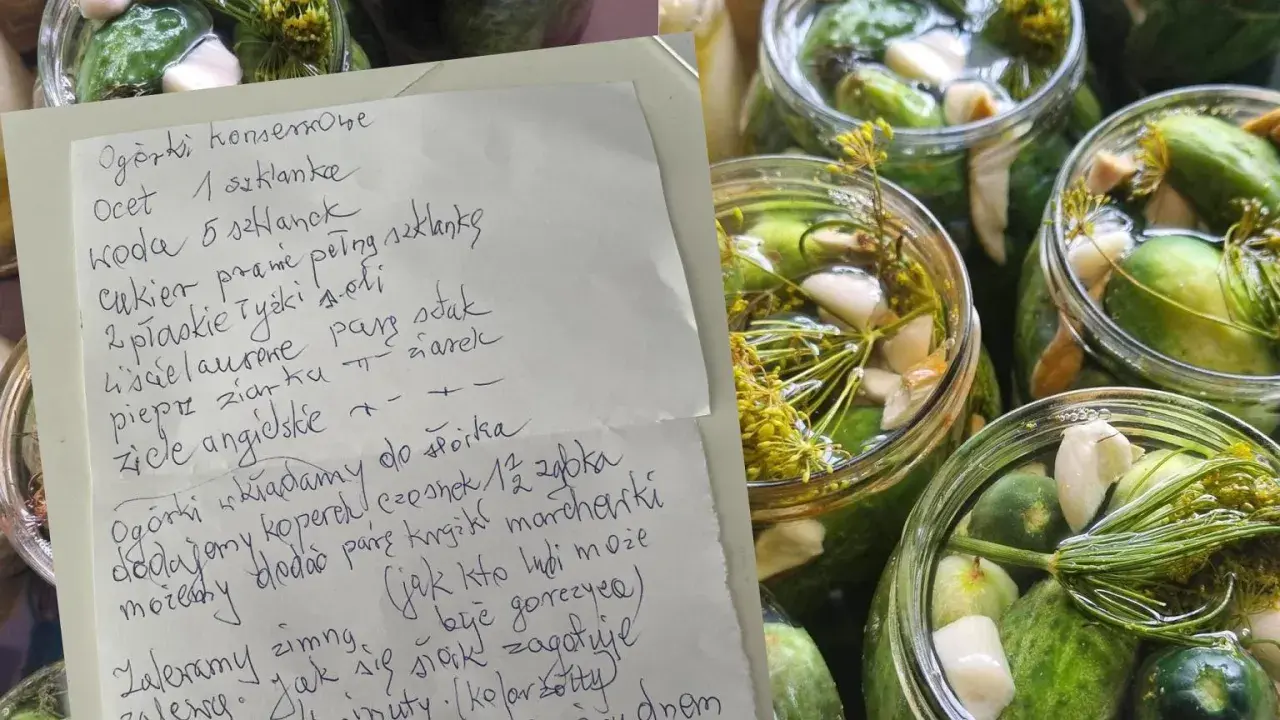 Ogórki konserwowe
ocet 1 szklanka
woda 5 szklanek
cukier prawie pełną szklankę
2 płaskie łyżki soli
liście laurowe parę sztuk
pieprz ziarka –"– ziarek
ziele angielskie
Ogórki wkładamy do słoika
dodajemy koperek czosnek 1/2 ząbka
możemy dodać parę krążki marchewki
(jak kto lubi może
być gorczyca)
Zalewamy zimną
zalewą. jak się słoik zagotuje
minuty. (kolor żółty)
dnem